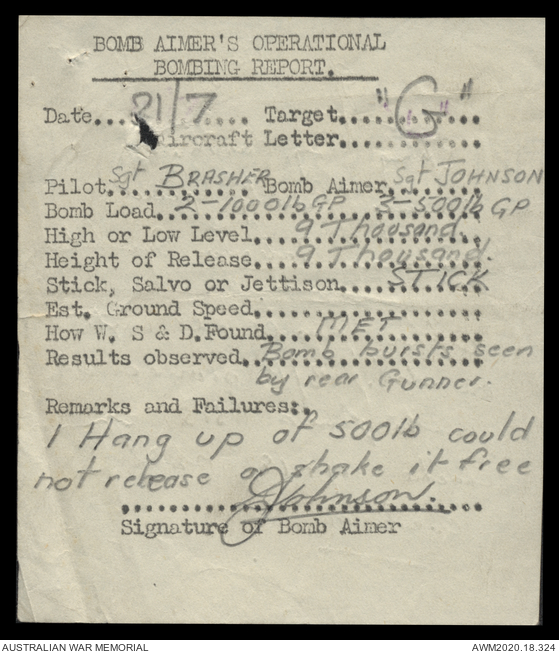 BOMB AIMER'S OPERATIONAL
BOMBING REPORT.
Date...21/7......... Target...."G"....
Aircraft Letter...............
Pilot Sgt BRASHER Bomb Aimer Sgt JOHNSON
Bomb Load..2-1000lb GP 3-500lb GP
High or Low Level....9 Thousand.
Height of Release....9 Thousand.
Stick, Salvo or Jettison....STICK
Est. Ground Speed..................
How W. S & D.Found....MET.........
Results observed.Bomb bursts seen
by rear Gunner.
Remarks and Failures:.
1 Hang up of 500lb could
not release or shake it free
Johnson.
Signature of Bomb Aimer
AUSTRALIAN WAR MEMORIAL
AWM2020.18.324